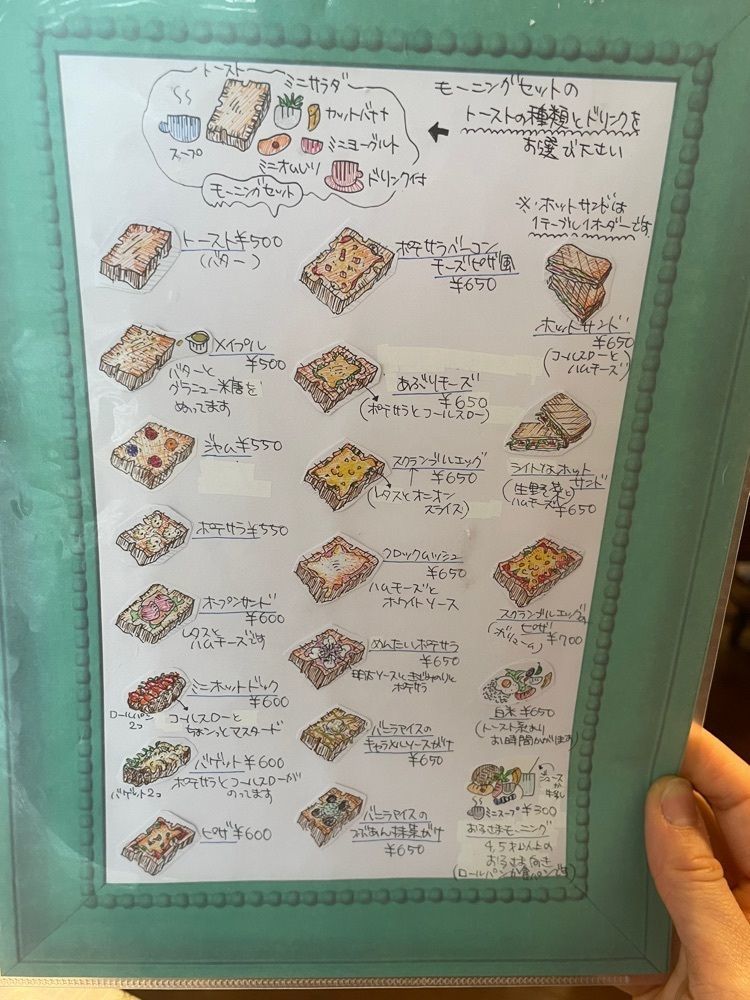 トースト
ミニサラダ
カットバナナ
ミニヨーグルト
スープ
ミニオムレツ
ドリンク付
モーニングセット
モーニングセットの
トーストの種類とドリンクを
お選び下さい
※ホットサンドは
1テーブル1オーダーです
トースト¥500
(バター)
メイプル
¥500
バターと
グラニュー糖を
ぬってます
ジャム¥550
ポテサラ¥550
オープンサンド
¥600
レタスと
ハムチーズです
ミニホットドック
¥600
ロールパン
2コ
コールスローと
ちょこっとマスタード
バゲット¥600
ポテサラとコールスローが
のってます
バゲット2コ
ピザ¥600
ポテサラベーコン
チーズピザ風
¥650
あぶりチーズ
¥650
(ポテサラとコールスロー)
スクランブルエッグ
¥650
(レタスとオニオン
スライス)
クロックムッシュ
¥650
ハムチーズと
ホワイトソース
めんたいポテサラ
¥650
明太ソースときざみのりと
ポテサラ
バニラアイスの
キャラメルソースがけ
¥650
バニラアイスの
つぶあん抹茶がけ
¥650
ホットサンド
¥650
(コールスローと
ハムチーズ)
ライトなホット
サンド
(生野菜と
ハムチーズ)
¥650
スクランブルエッグの
ピザ
(ボリューム)
¥700
白米¥650
(トースト系より
お時間かかります)
ジュース
か
牛乳
ミニスープ ¥300
おこさまモーニング
4,5才以上の
おこさま向き
(ロールパンか食パンです)